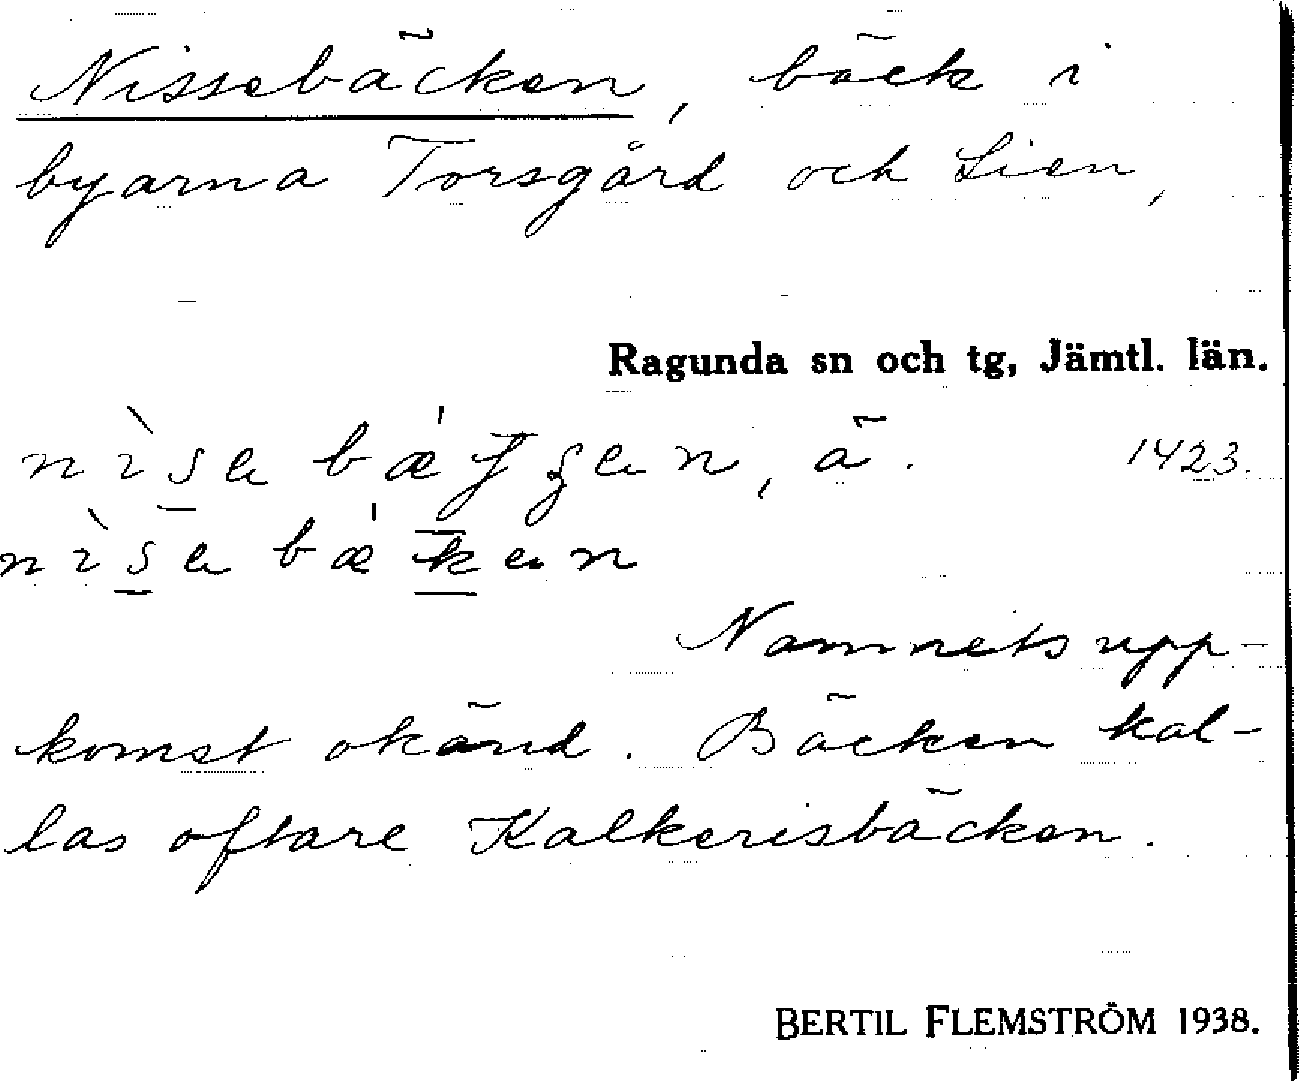 Nissebäcken, bäck i
byarna Torsgård och Lien,
Ragunda sn och tg, Jämtl. län.
ä. 1423.
Namnets upp-
komst okänd. Bäcken kal-
las oftare Kalkerisbäcken.
BERTIL FLEMSTRÖM 1938.